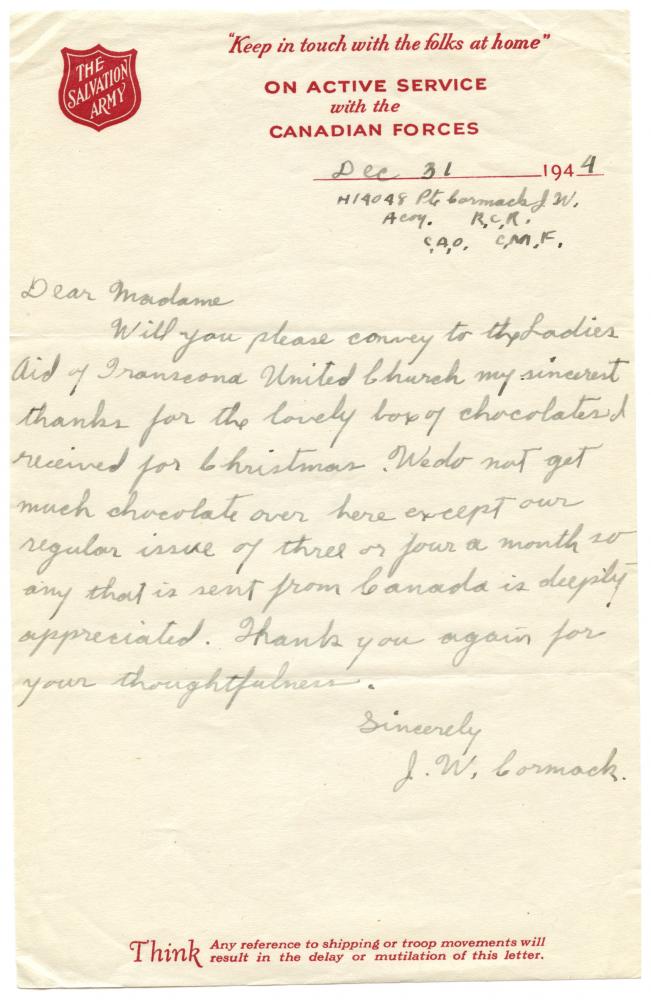 THE
SALVATION
ARMY
"Keep in touch with the folks at home"
ON ACTIVE SERVICE
with the
CANADIAN FORCES
Dec 31 1944
H14048 Pte Cormack J W.
A coy. R.C.R.
C.A.O. C.M.F.
Dear Madame
Will you please convey to the Ladies
Aid of Transcona United Church my sincerest
thanks for the lovely box of chocolates I
received for Christmas. We do not get
much chocolate over here except our
regular issue of three or four a month so
any that is sent from Canada is deeply
appreciated. Thank you again for
your thoughtfulness.
Sincerely
J. W. Cormack.
Think Any reference to shipping or troop movements will
result in the delay or mutilation of this letter.